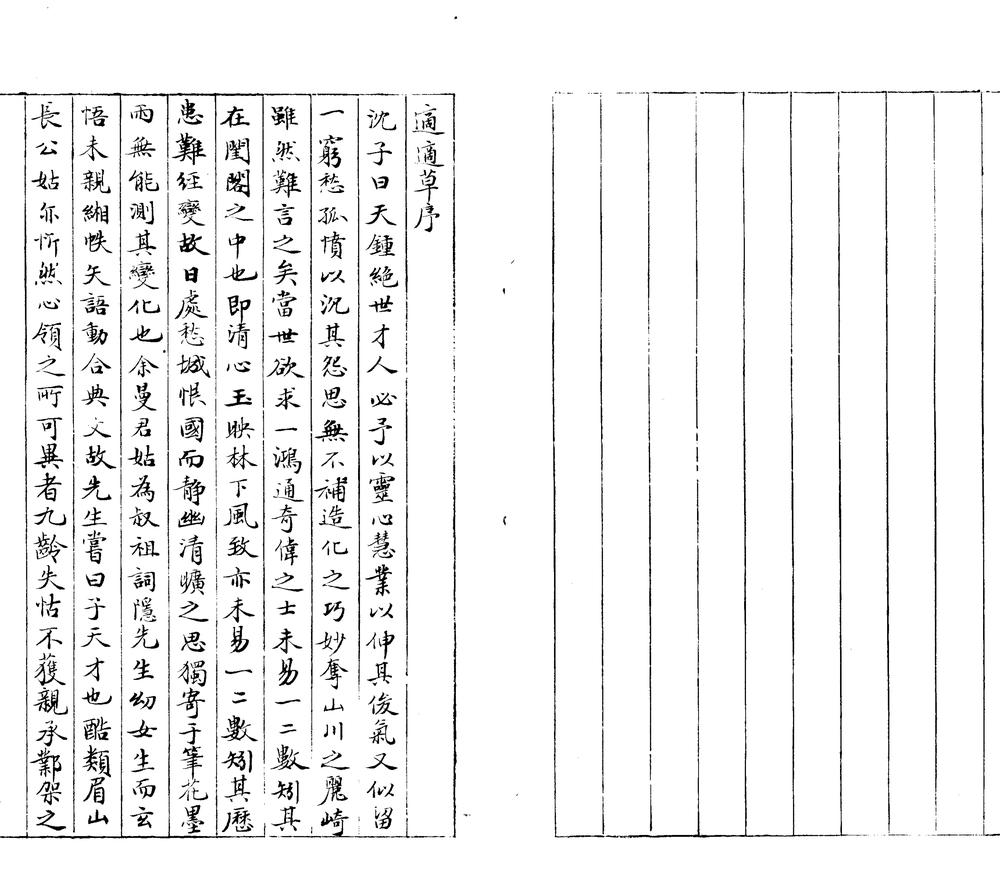 適適草序
沈子曰天鍾絕世才人必予以靈心慧業以伸其俊氣又似留
一窮愁孤憤以沉其怨思無不補造化之巧妙奪山川之麗崎
雖然難言之矣當世欲求一鴻通奇偉之士未易一二數矧其
在閨閣之中也即清心玉映林下風致亦未易一二數矧其歷
患難經變故日處愁城恨國而靜幽清曠之思獨寄于筆花墨
雨無能測其變化也余曼君姑為叔祖詞隱先生幼女生而玄
悟未親緗帙矢語動合典文故先生嘗曰子天才也酷類眉山
長公姑亦忻然心領之所可異者九齡失怙不獲親承鄴架之